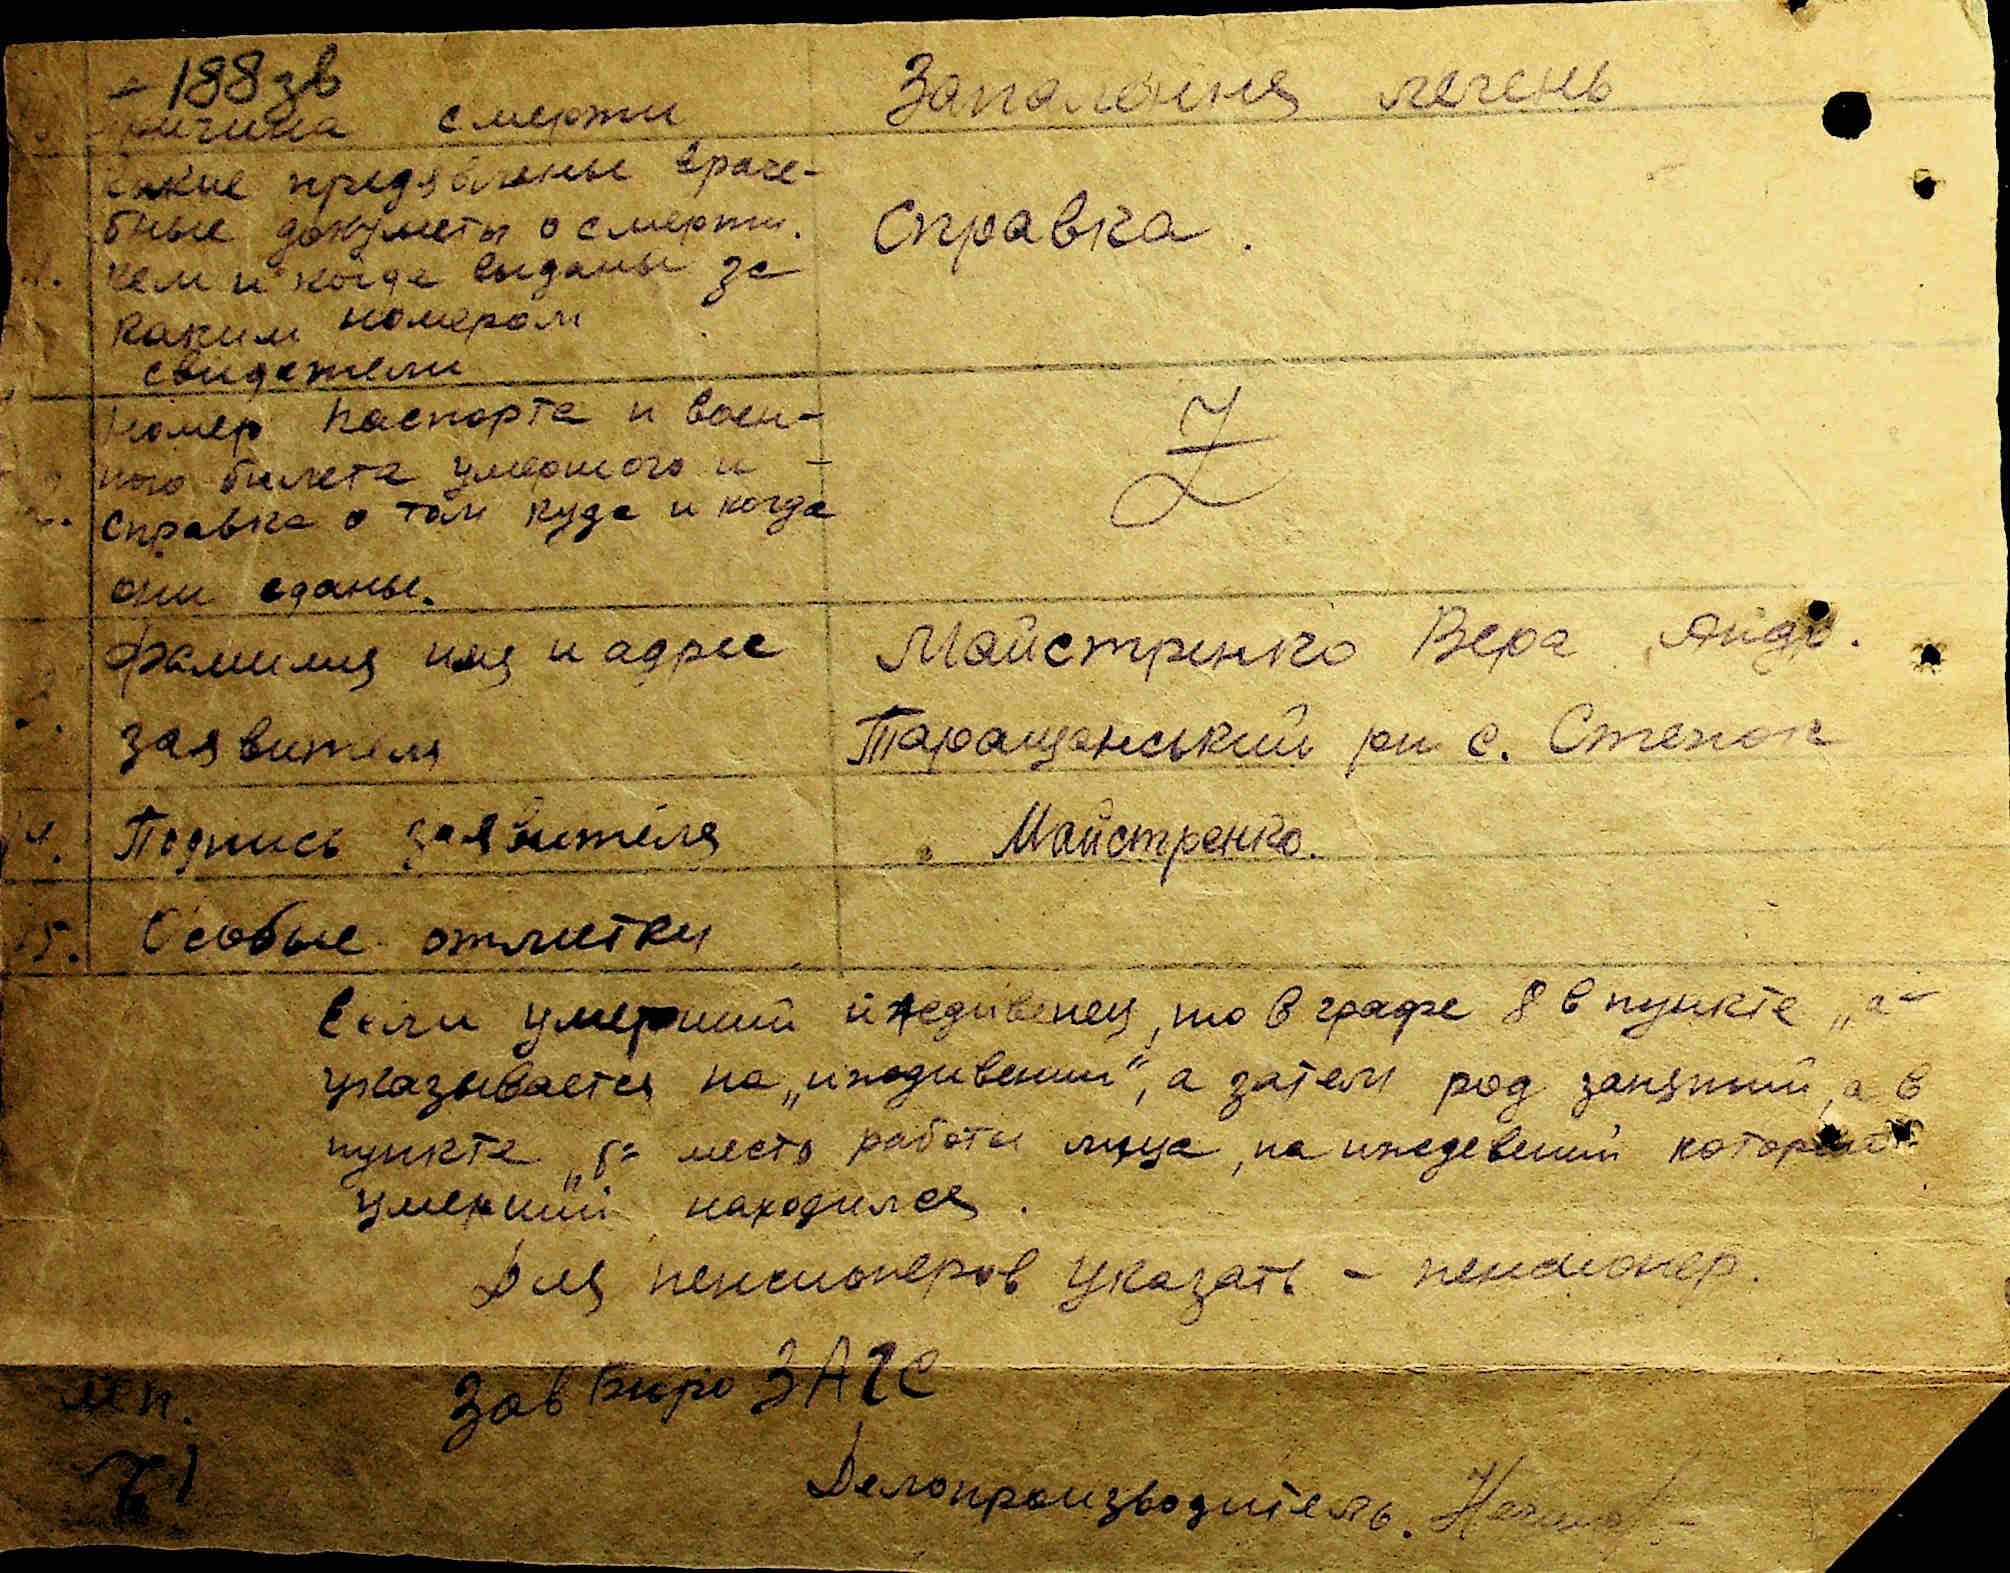 188 зв
Причина смерти Запалення легень
какие предявлены враче-
бные докуметы о смерти.
кем и когда выданы за Справка.
каким номером
свидетели
Номер паспорта и воен-
ного билета умершого и -
справка о том куда и когда
они сданы.
Фамилия имя и адрес Майстренко Вера
заявителя Таращанський рн с. Степок
4. Подпись заявителя Майстренко.
5. Особые отметки
Если умерший иждивенец, то в графе 8 в пункте „а"
указывается на „иждивении", а затем род занятий, а в
пункте „б" место работы лица, на иждевении которого
умерший находился.
Для пенсионеров указать - пенсионер.
мп. Зав Бюро ЗАГС
Делопроизводитель.